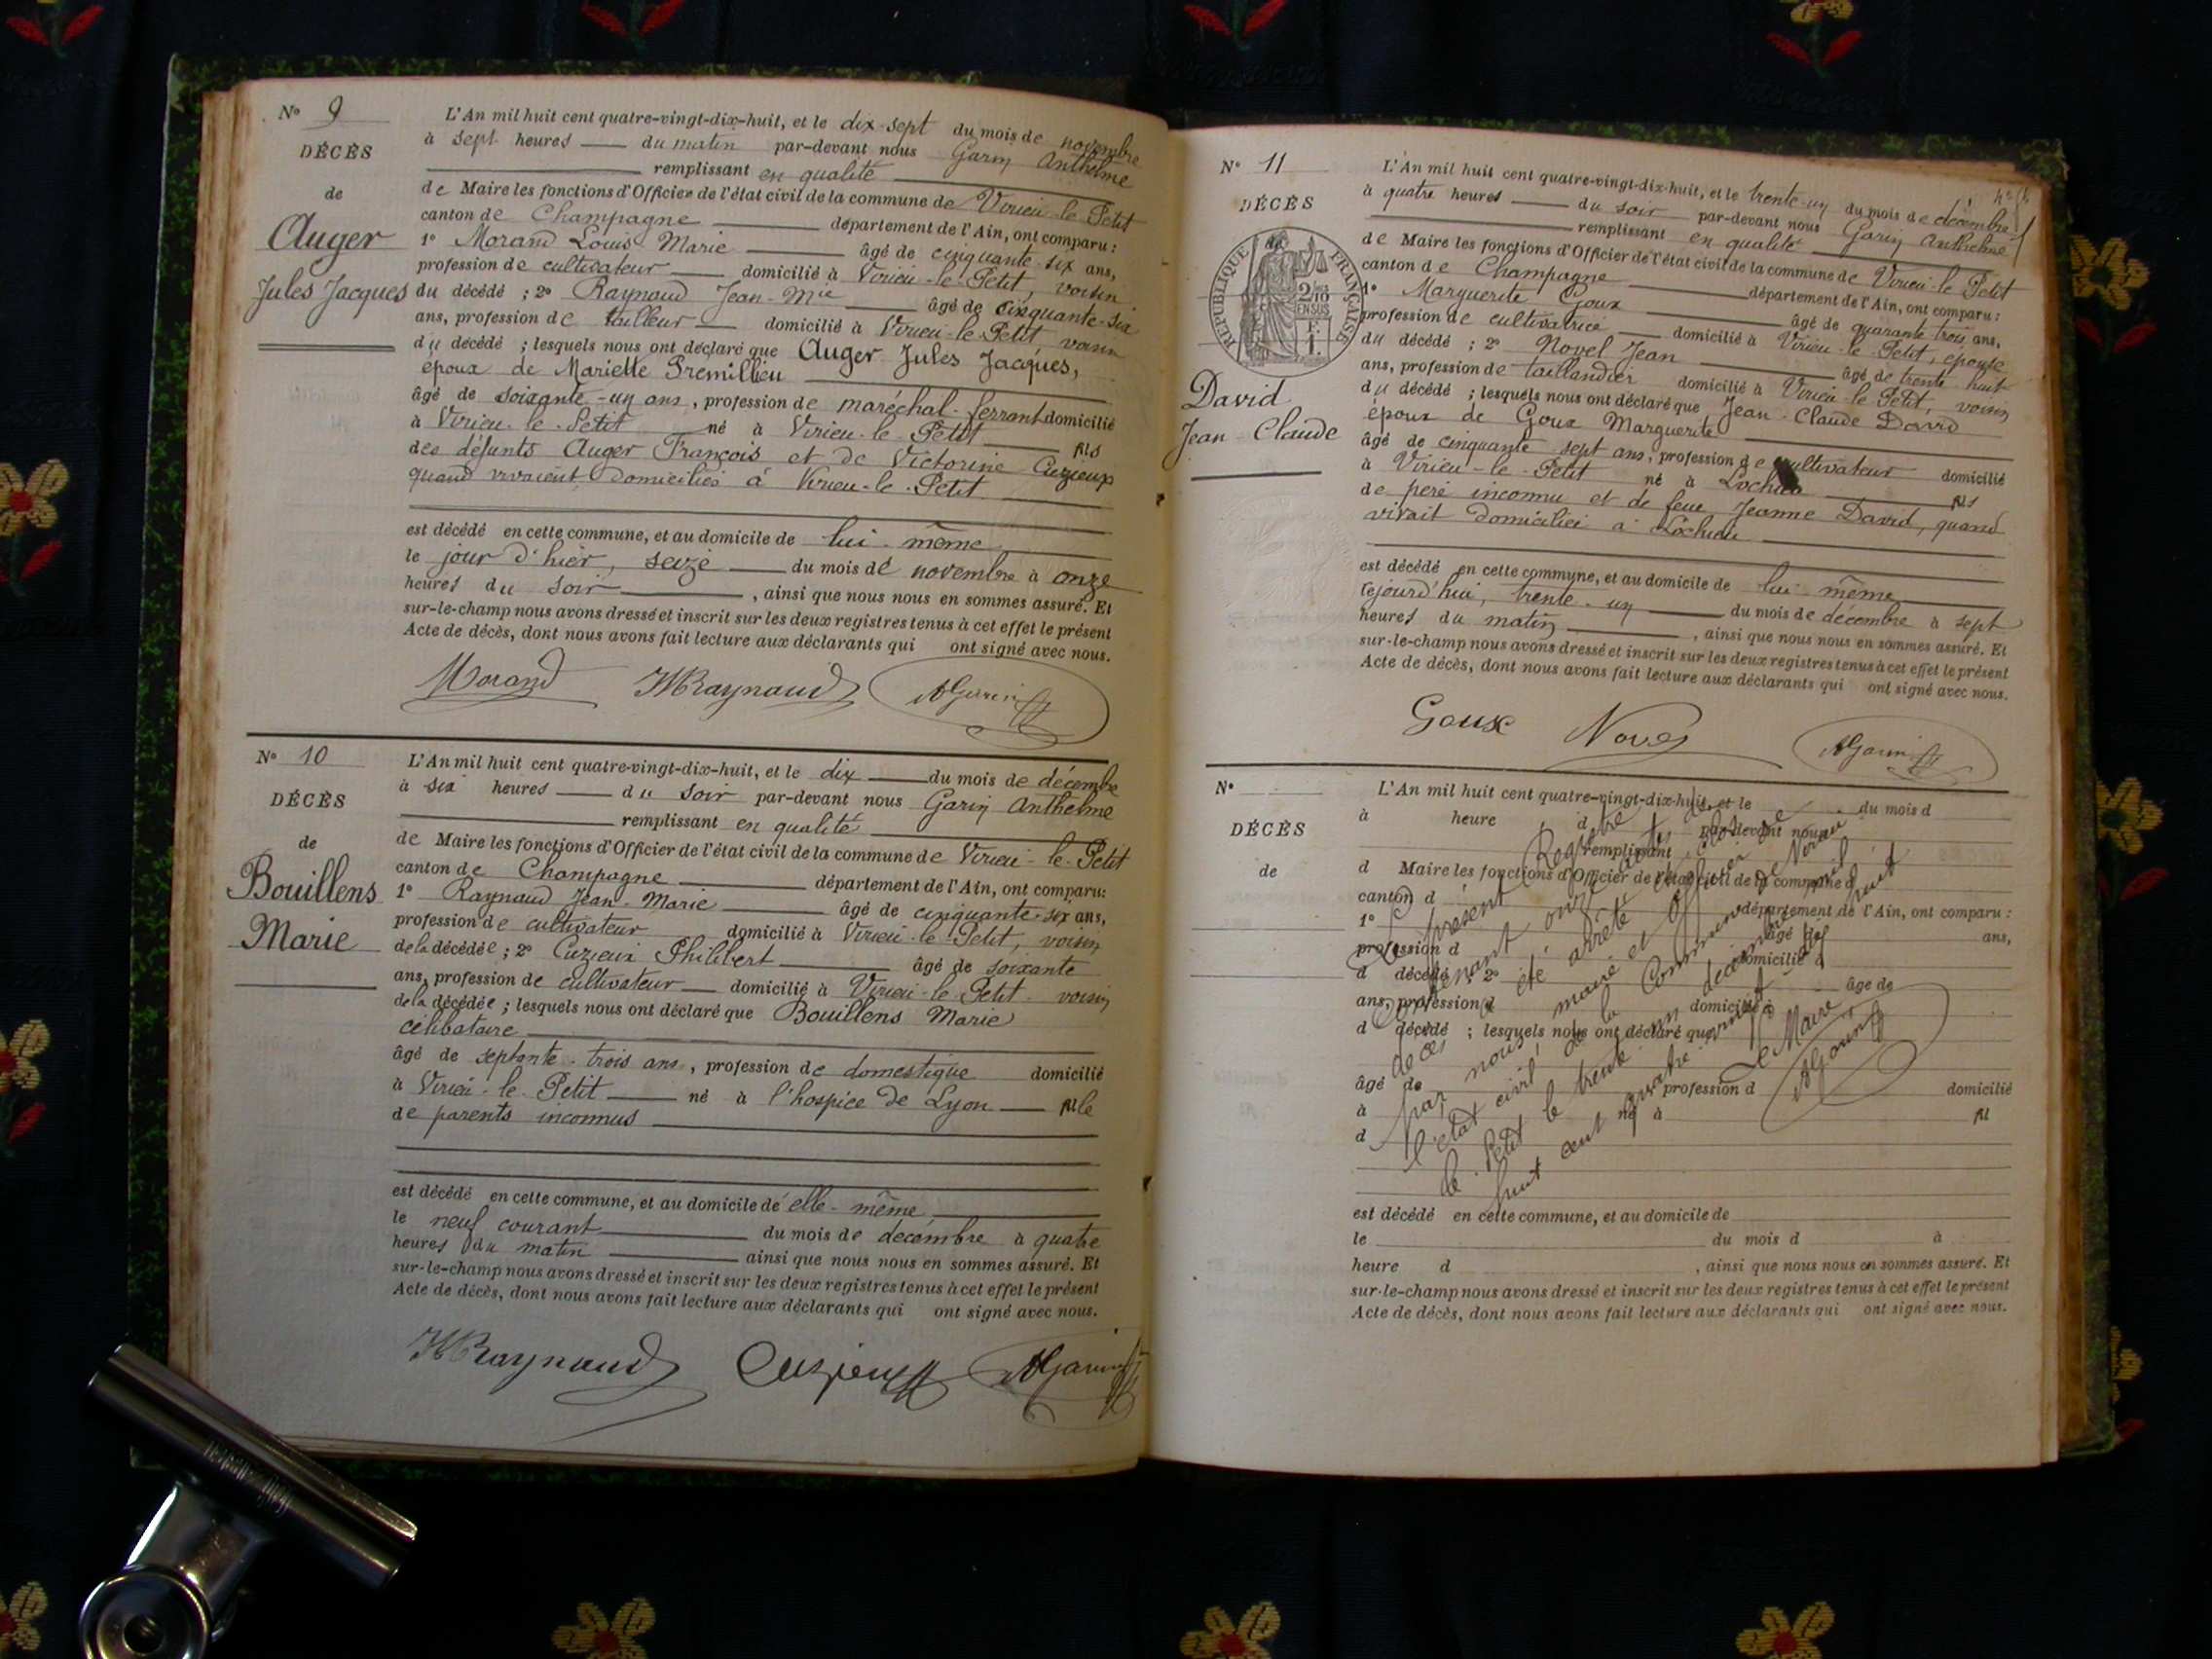 N° 9
DÉCÈS
de
Auger
Jules Jacques
L'An mil huit cent quatre-vingt-dix-huit, et le dix-sept du mois de novembre
à sept heures du matin par-devant nous Garin Anthelme
remplissant en qualité
de Maire les fonctions d'Officier de l'état civil de la commune de Virieu-le-Petit
canton de Champagne département de l'Ain, ont comparu :
1° Morand Louis-Marie âgé de cinquante-six ans,
profession de cultivateur domicilié à Virieu-le-Petit, voisin
du décédé ; 2° Raynaud Jean-Mie âgé de cinquante-six
ans, profession de tailleur domicilié à Virieu-le-Petit, voisin
du décédé ; lesquels nous ont déclaré que Auger Jules Jacques,
époux de Mariette Premillieu
âgé de soixante-un ans, profession de maréchal-ferrant domicilié
à Virieu-le-Petit né à Virieu-le-Petit fils
des défunts Auger François et de Victorine Cuzieux
quand vivaient domiciliés à Virieu-le-Petit
est décédé en cette commune, et au domicile de lui-même
le jour d'hier, seize du mois de novembre à onze
heures du soir, ainsi que nous nous en sommes assuré. Et
sur-le-champ nous avons dressé et inscrit sur les deux registres tenus à cet effet le présent
Acte de décès, dont nous avons fait lecture aux déclarants qui ont signé avec nous.
Morand JMRaynaud AGarin
N° 10
DÉCÈS
de
Bouillens
Marie
L'An mil huit cent quatre-vingt-dix-huit, et le dix du mois de décembre
à six heures du soir par-devant nous Garin Anthelme
remplissant en qualité
de Maire les fonctions d'Officier de l'état civil de la commune de Virieu-le-Petit
canton de Champagne département de l'Ain, ont comparu:
1° Raynaud Jean-Marie âgé de cinquante-six ans,
profession de cultivateur domicilié à Virieu-le-Petit, voisin
de la décédée ; 2° Cuzieux Philibert âgé de soixante
ans, profession de cultivateur domicilié à Virieu-le-Petit voisin
de la décédée ; lesquels nous ont déclaré que Bouillens Marie
célibataire
âgé de septante-trois ans, profession de domestique domicilié
à Virieu-le-Petit né à l'hospice de Lyon fille
de parents inconnus
est décédé en cette commune, et au domicile de elle-même
le neuf courant du mois de décembre à quatre
heures du matin ainsi que nous nous en sommes assuré. Et
sur-le-champ nous avons dressé et inscrit sur les deux registres tenus à cet effet le présent
Acte de décès, dont nous avons fait lecture aux déclarants qui ont signé avec nous.
JMRaynaud Cuzieux AGarin
N° 11
DÉCÈS
RÉPUBLIQUE FRANÇAISE
2/10
EN SUS
F.
1.
David
Jean-Claude
L'An mil huit cent quatre-vingt-dix-huit, et le trente-un du mois de décembre
à quatre heures du soir par-devant nous Garin Anthelme
remplissant en qualité
de Maire les fonctions d'Officier de l'état civil de la commune de Virieu-le-Petit
canton de Champagne département de l'Ain, ont comparu :
1° Marguerite Goux âgé de quarante trois ans,
profession de cultivatrice domicilié à Virieu-le-Petit, épouse
du décédé ; 2° Novel Jean âgé de trente huit
ans, profession de taillandier domicilié à Virieu-le-Petit, voisin
du décédé ; lesquels nous ont déclaré que Jean-Claude David
époux de Goux Marguerite
âgé de cinquante sept ans, profession de cultivateur domicilié
à Virieu-le-Petit né à Lochieu fils
de père inconnu et de feue Jeanne David, quand
vivait domiciliée à Lochieu
est décédé en cette commune, et au domicile de lui-même
lejourd'hui, trente-un du mois de décembre à sept
heures du matin, ainsi que nous nous en sommes assuré. Et
sur-le-champ nous avons dressé et inscrit sur les deux registres tenus à cet effet le présent
Acte de décès, dont nous avons fait lecture aux déclarants qui ont signé avec nous.
Goux Novel AGarin
N°
DÉCÈS
de
L'An mil huit cent quatre-vingt-dix-huit, et le du mois d
à heure d par-devant nous
remplissant
d Maire les fonctions d'Officier de l'état civil de la commune d
canton d département de l'Ain, ont comparu :
1° âgé de ans,
profession d domicilié à
d décédé ; 2° âge de
ans, profession d domicilié à
d décédé ; lesquels nous ont déclaré que
âgé de profession d domicilié
à né à fil
d
est décédé en cette commune, et au domicile de
le du mois d à
heure d, ainsi que nous nous en sommes assuré. Et
sur-le-champ nous avons dressé et inscrit sur les deux registres tenus à cet effet le présent
Acte de décès, dont nous avons fait lecture aux déclarants qui ont signé avec nous.
Le présent Registre
contenant onze actes de
décès a été arrêté et clos
par nous maire et officier de
l'état civil de la Commune de Virieu
le Petit le trente un décembre mil
huit cent quatre-vingt dix huit
Le Maire
AGarin